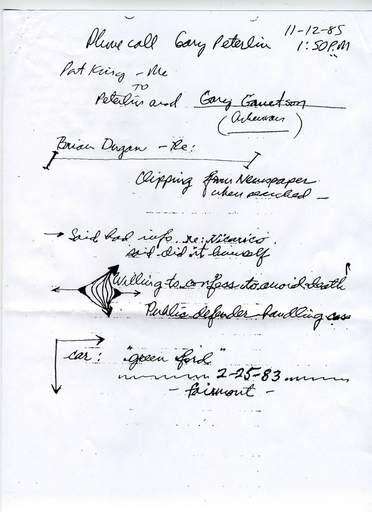 Phone call Gary Peterlin 11-12-85
1:50 P.M
Pat King - Me
TO
Peterlin and Gary Garretson
(Ackerman)
Brian Dugan - Re:
Clipping from Newspaper
when needed -
→ Said had info re: Nicarico
said did it himself
willing to confess to avoid death
Public defender handling case
car: "green ford"
2-25-83
- fairmont -